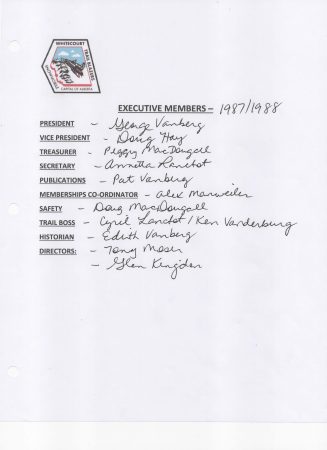 WHITECOURT
TRAIL BLAZERS
SNOWMOBILE
CAPITAL OF ALBERTA
EXECUTIVE MEMBERS – 1987/1988
PRESIDENT – George Vanberg
VICE PRESIDENT – Doug Hay
TREASURER – Peggy MacDougall
SECRETARY – Annetta Lanctot
PUBLICATIONS – Pat Vanberg
MEMBERSHIPS CO-ORDINATOR – Alex Manweiler
SAFETY – Doug MacDougall
TRAIL BOSS – Cyril Lanctot / Ken Vanderburg
HISTORIAN – Edith Vanberg
DIRECTORS: – Tony Moser
– Glen Kingdon